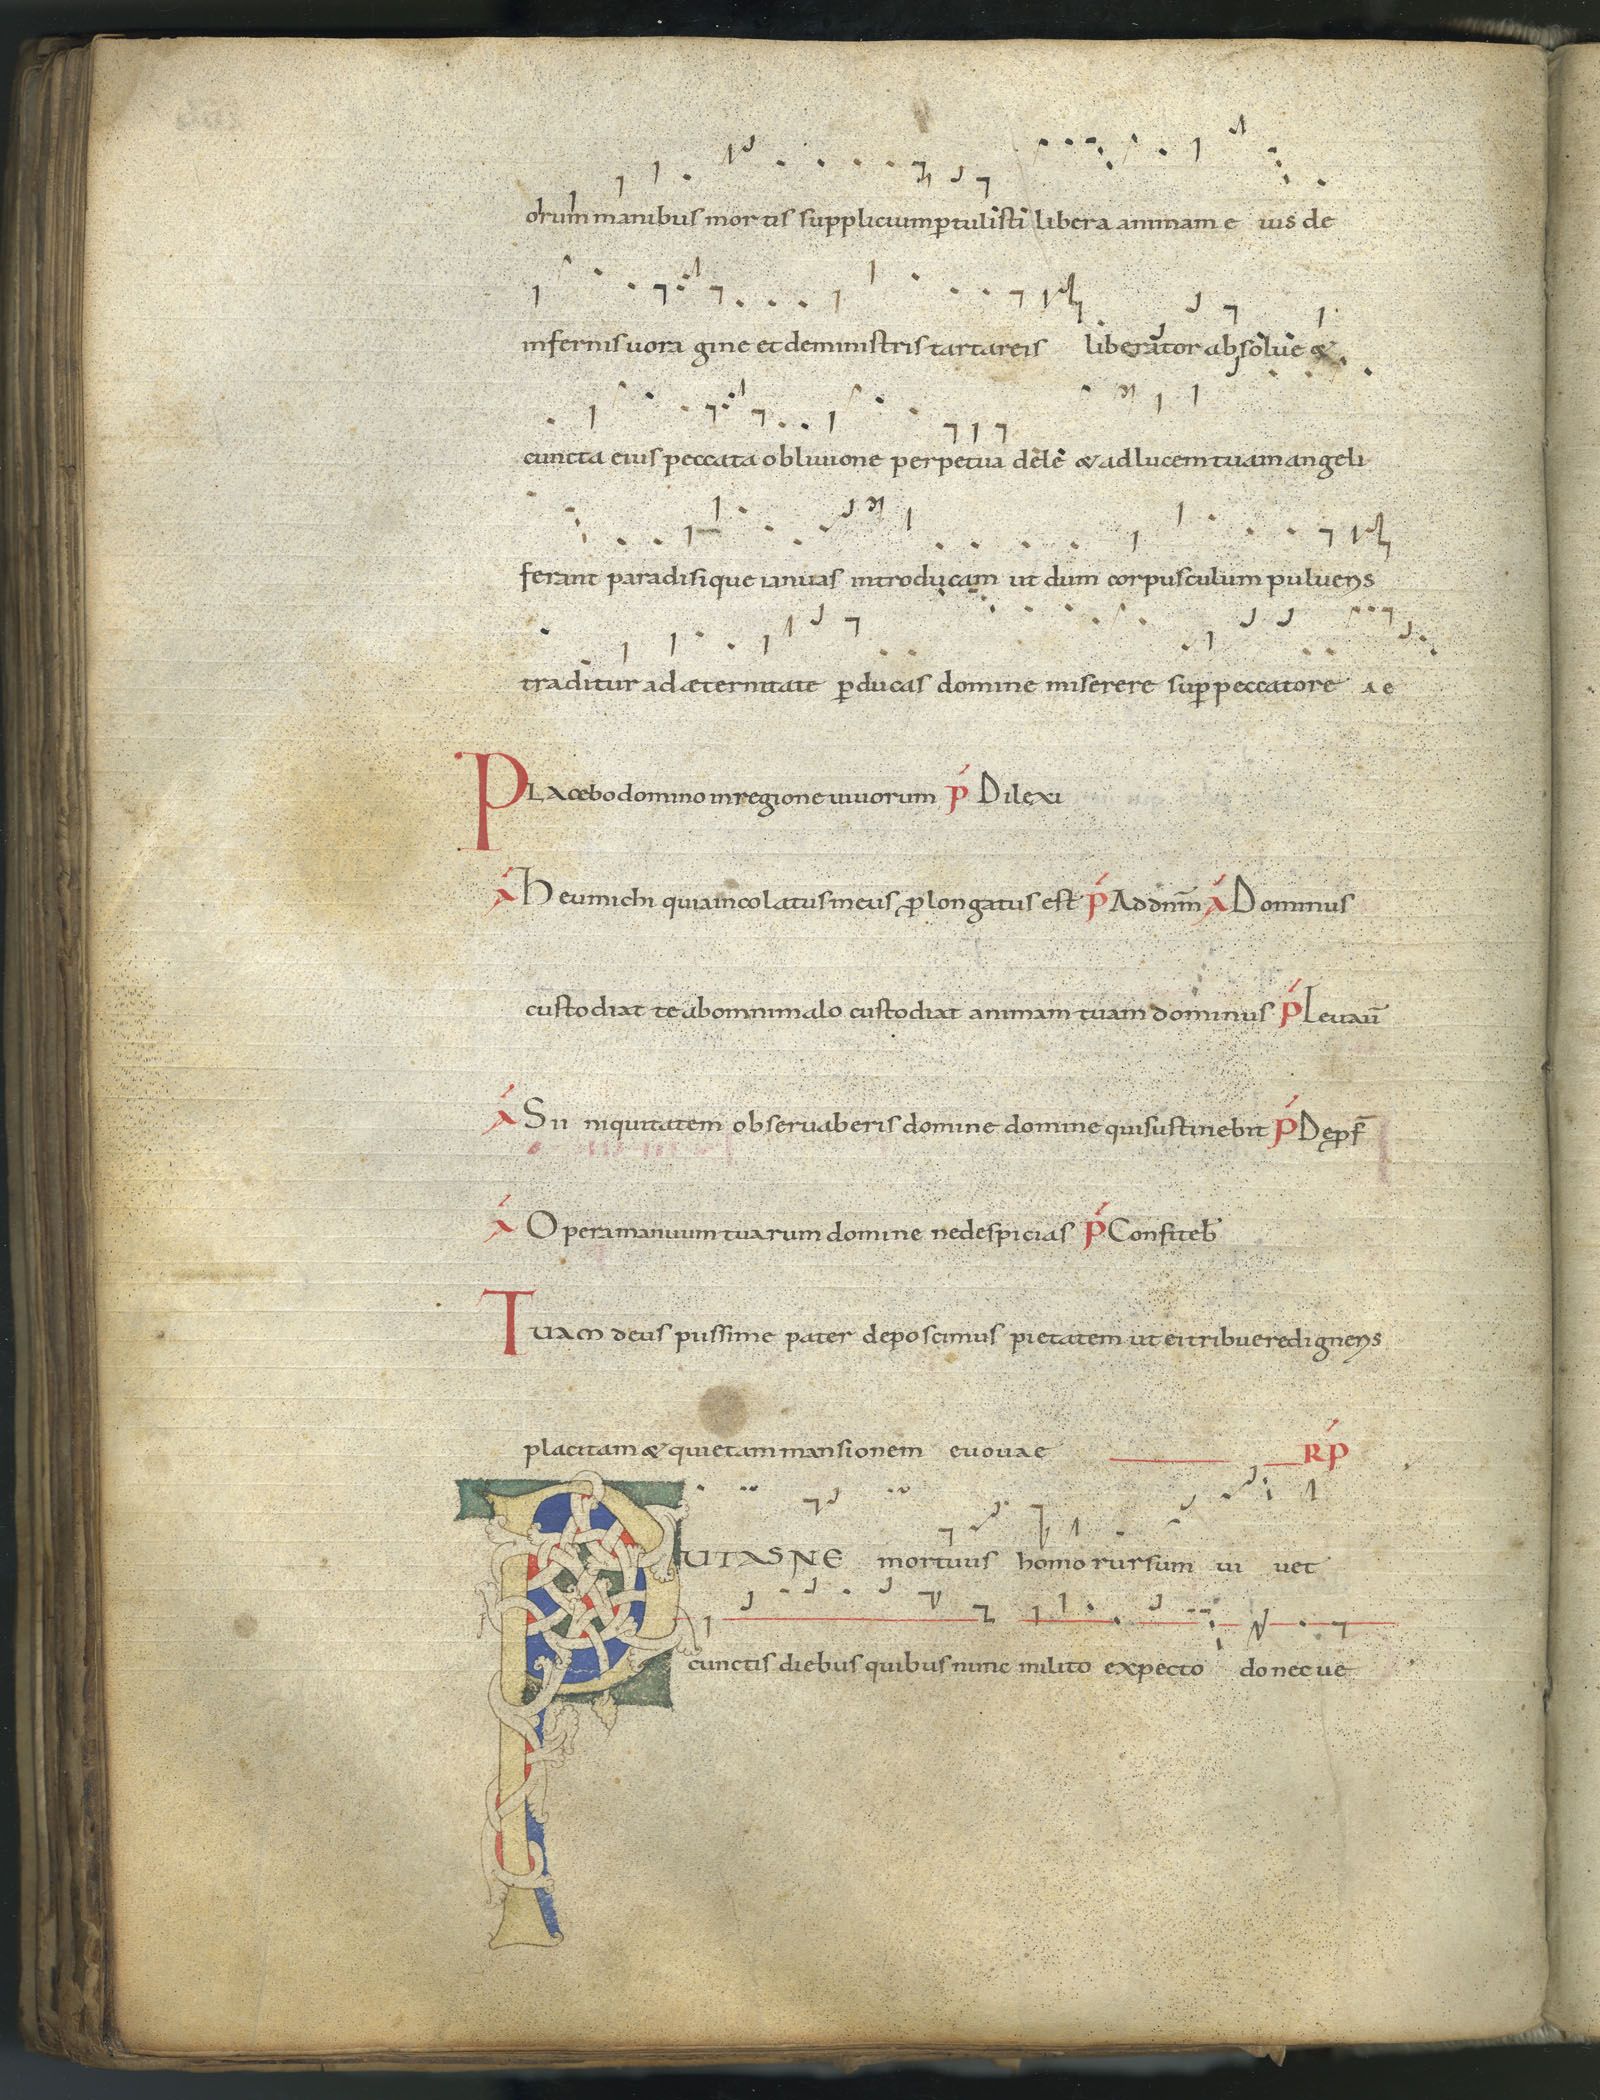 orum manibus mortis supplicium ptulisti libera animam e ius de
infernis uora gine et deministris tartareis liberator absolue &
cuncta eius peccata obliuione perpetua dele & ad lucem tuam angeli
ferant paradisique ianuas introducam ut dum corpusculum pulueris
traditur ad aeternitate pducas domine miserere sup peccatore ae
PLAcebo domino in regione uiuorum p Dilexi
A Heu michi quia incolatus meus plongatus est p Ad dnm A Dominus
custodiat te ab omni malo custodiat animam tuam dominus p Leuaui
A Si i niquitatem obseruaberis domine domine quis ustinebit p De pf
A Opera manuum tuarum domine ne despicias p Confiteb
TUAM deus piissime pater deposcimus pietatem ut ei tribuere digneris
placitam & quietam mansionem euouae Rp
PUTASNE mortuus homo rursum ui uet
cunctis diebus quibus nunc milito expecto donec ue